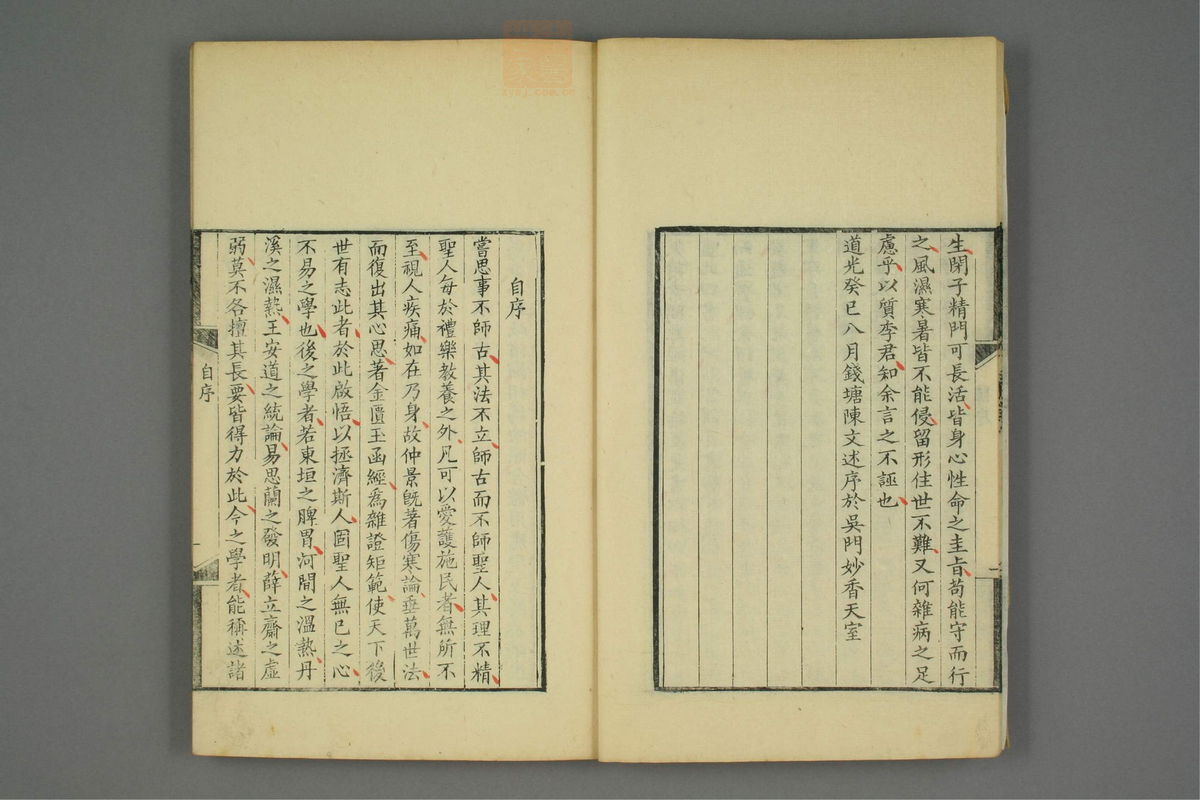 生閉子精門可長活皆身心性命之圭旨苟能守而行
之風濕寒暑皆不能侵留形住世不難又何雜病之足
慮乎以質李君知余言之不誣也
道光癸巳八月錢塘陳文述序於吳門妙香天室
自序
嘗思事不師古其法不立師古而不師聖人其理不精
聖人每於禮樂教養之外凡可以愛護施民者無所不
至視人疾痛如在乃身故仲景既著傷寒論垂萬世法
而復出其心思著金匱玉函經為雜證矩範使天下後
世有志此者於此啟悟以拯濟斯人固聖人無已之心
不易之學也後之學者若東垣之脾胃河間之溫熱丹
溪之濕熱王安道之統論易思蘭之發明薛立齋之虛
弱莫不各擅其長要皆得力於此今之學者能稱述諸
自序
一